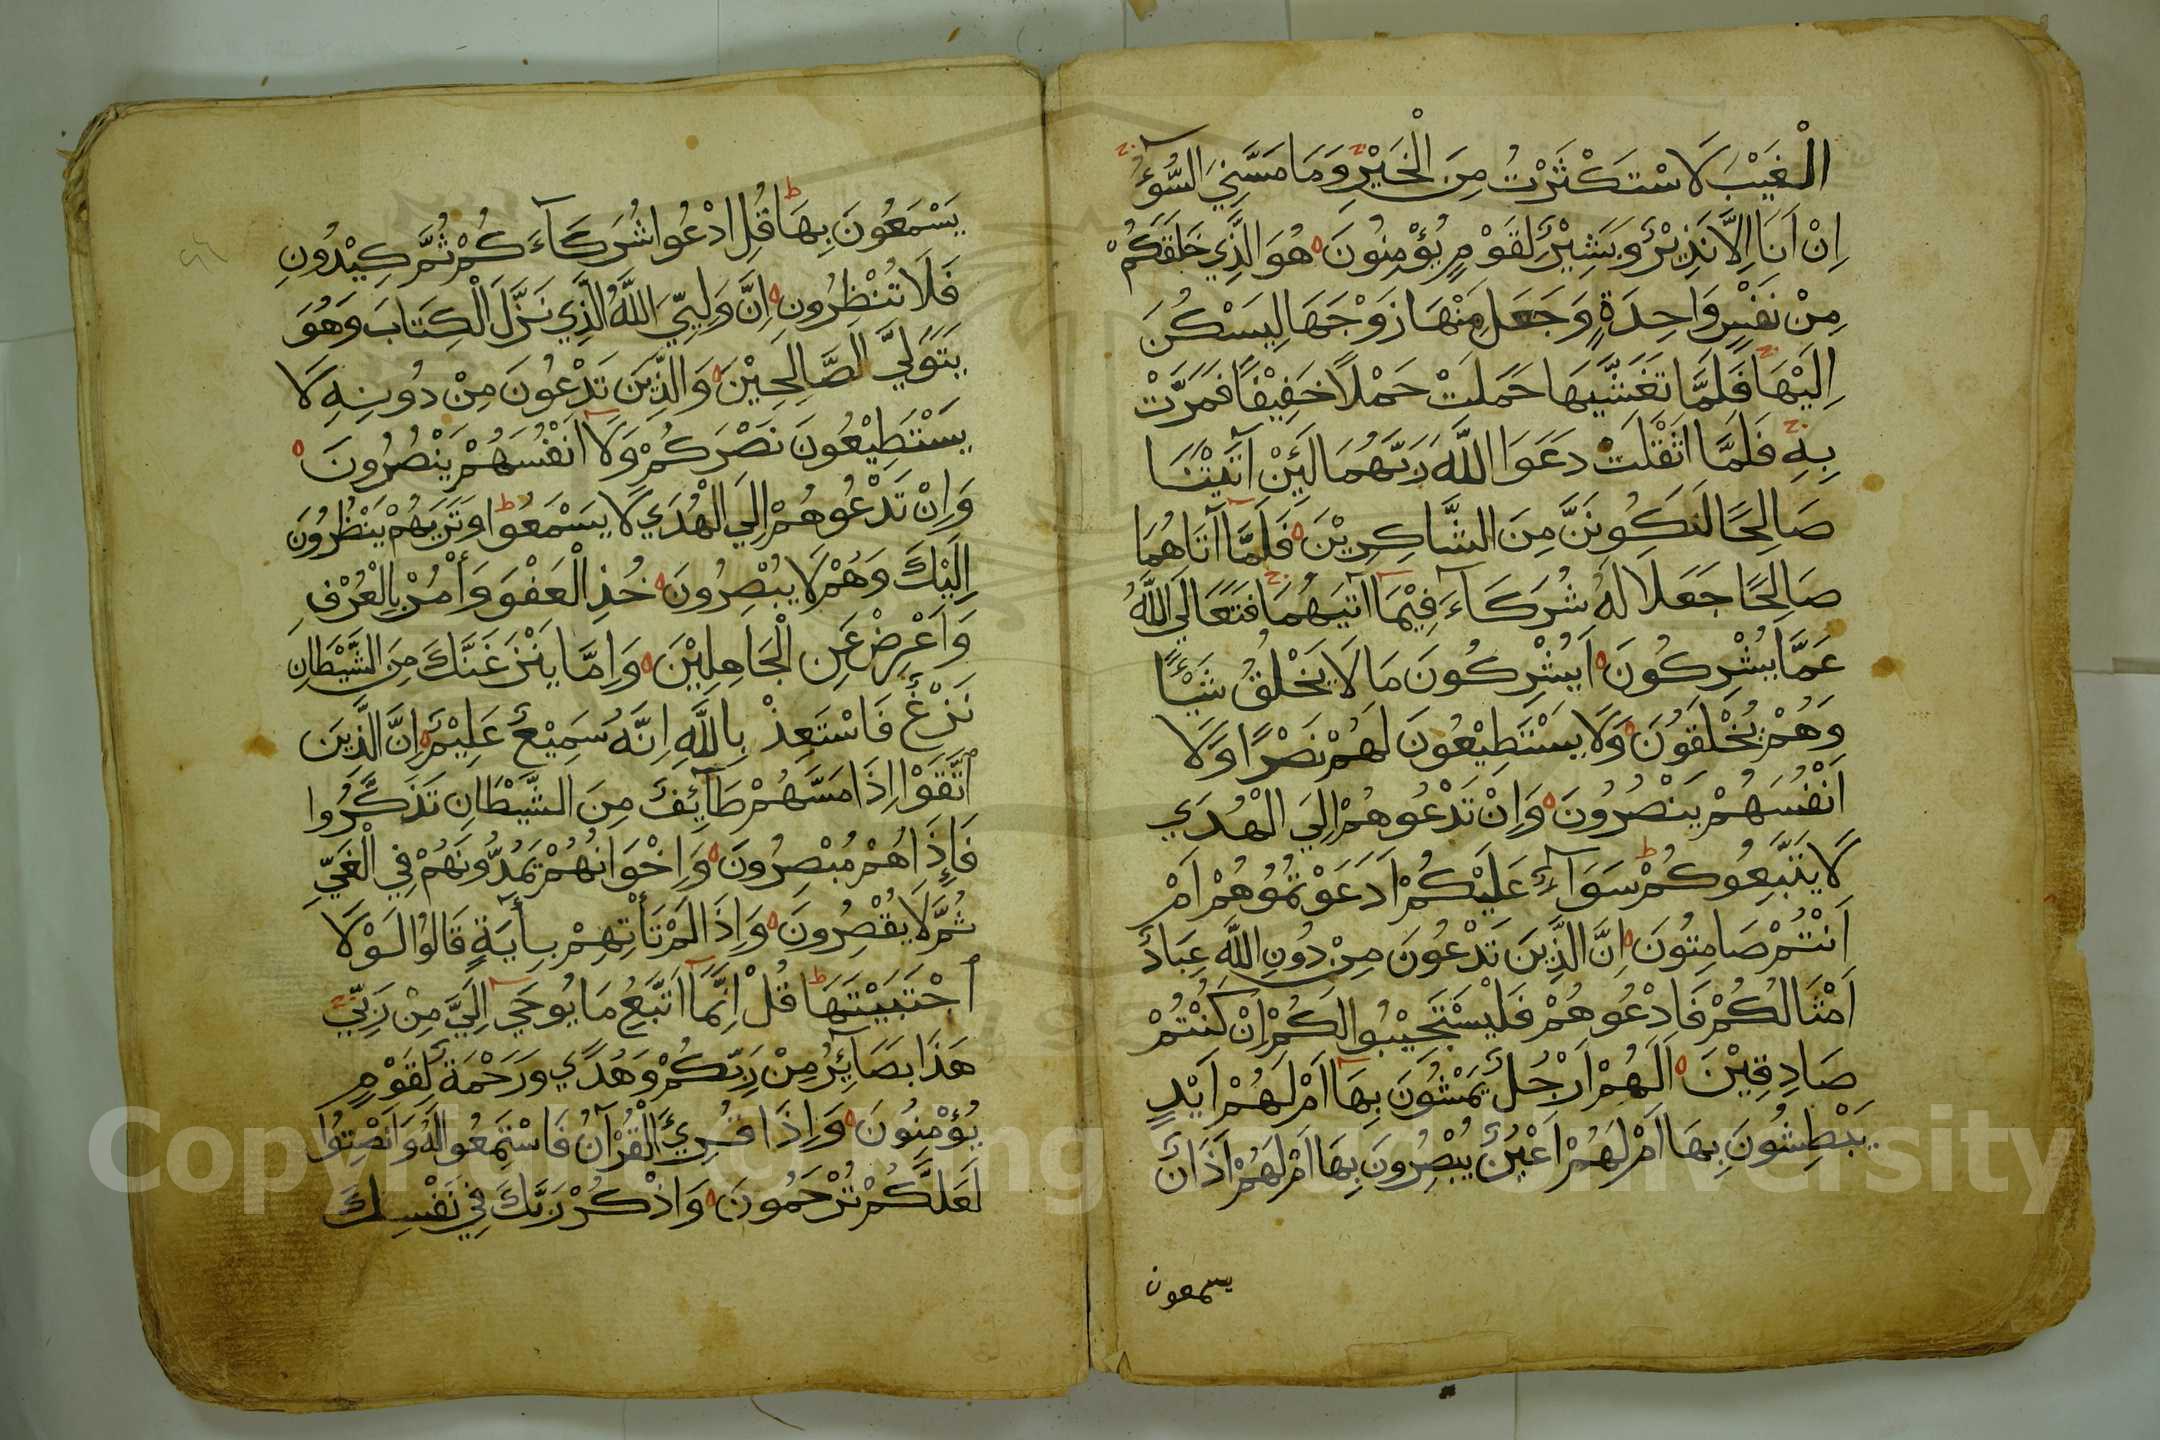 الْغَيْبَ لَاسْتَكْثَرْتُ مِنَ الْخَيْرِ وَمَا مَسَّنِيَ السُّوْٓءُ
اِنْ اَنَا اِلَّا نَذِيْرٌ وَبَشِيْرٌ لِقَوْمٍ يُؤْمِنُونَ هُوَ الَّذِي خَلَقَكُمْ
مِنْ نَفْسٍ وَاحِدَةٍ وَجَعَلَ مِنْهَا زَوْجَهَا لِيَسْكُنَ
اِلَيْهَا فَلَمَّا تَغَشّٰيهَا حَمَلَتْ حَمْلًا خَفِيْفًا فَمَرَّتْ
بِهِ فَلَمَّا اَثْقَلَتْ دَعَوَا اللَّهَ رَبَّهُمَا لَئِنْ آتَيْتَنَا
صَالِحًا لَنَكُونَنَّ مِنَ الشَّاكِرِيْنَ فَلَمَّا آتَاهُمَا
صَالِحًا جَعَلَا لَهُ شُرَكَآءَ فِيْمَا آتٰيهُمَا فَتَعَالَي اللَّهُ
عَمَّا يُشْرِكُونَ اَيُشْرِكُونَ مَا لَا يَخْلُقُ شَيْئًا
وَهُمْ يُخْلَقُونَ وَلَا يَسْتَطِيْعُونَ لَهُمْ نَصْرًا وَلَا
اَنْفُسَهُمْ يَنْصُرُونَ وَاِنْ تَدْعُوهُمْ اِلَي الْهُدَي
لَا يَتَّبِعُوكُمْ سَوَآءٌ عَلَيْكُمْ اَدَعَوْتُمُوهُمْ اَمْ
اَنْتُمْ صَامِتُونَ اِنَّ الَّذِيْنَ تَدْعُونَ مِنْ دُونِ اللَّهِ عِبَادٌ
اَمْثَالُكُمْ فَادْعُوهُمْ فَلْيَسْتَجِيْبُوا لَكُمْ اِنْ كُنْتُمْ
صَادِقِيْنَ اَلَهُمْ اَرْجُلٌ يَمْشُونَ بِهَا اَمْ لَهُمْ اَيْدٍ
يَبْطِشُونَ بِهَا اَمْ لَهُمْ اَعْيُنٌ يُبْصِرُونَ بِهَا اَمْ لَهُمْ آذَانٌ
يسمعون
يَسْمَعُونَ بِهَا قُلِ ادْعُوا شُرَكَآءَكُمْ ثُمَّ كِيْدُونِ
فَلَا تُنْظِرُونِ اِنَّ وَلِيِّيَ اللَّهُ الَّذِي نَزَّلَ الْكِتَابَ وَهُوَ
يَتَوَلَّي الصَّالِحِيْنَ وَالَّذِيْنَ تَدْعُونَ مِنْ دُونِهِ لَا
يَسْتَطِيْعُونَ نَصْرَكُمْ وَلَا اَنْفُسَهُمْ يَنْصُرُونَ
وَاِنْ تَدْعُوهُمْ اِلَي الْهُدَي لَا يَسْمَعُوا وَتَرٰيهُمْ يَنْظُرُونَ
اِلَيْكَ وَهُمْ لَا يُبْصِرُونَ خُذِ الْعَفْوَ وَأْمُرْ بِالْعُرْفِ
وَاَعْرِضْ عَنِ الْجَاهِلِيْنَ وَاِمَّا يَنْزَغَنَّكَ مِنَ الشَّيْطَانِ
نَزْغٌ فَاسْتَعِذْ بِاللَّهِ اِنَّهُ سَمِيْعٌ عَلِيْمٌ اِنَّ الَّذِيْنَ
اتَّقَوْا اِذَا مَسَّهُمْ طَآئِفٌ مِنَ الشَّيْطَانِ تَذَكَّرُوا
فَاِذَا هُمْ مُبْصِرُونَ وَاِخْوَانُهُمْ يَمُدُّونَهُمْ فِي الْغَيِّ
ثُمَّ لَا يُقْصِرُونَ وَاِذَا لَمْ تَأْتِهِمْ بِآيَةٍ قَالُوا لَوْلَا
اجْتَبَيْتَهَا قُلْ اِنَّمَا اَتَّبِعُ مَا يُوحَي اِلَيَّ مِنْ رَبِّي
هَذَا بَصَآئِرُ مِنْ رَبِّكُمْ وَهُدًي وَرَحْمَةٌ لِقَوْمٍ
يُؤْمِنُونَ وَاِذَا قُرِئَ الْقُرْآنُ فَاسْتَمِعُوا لَهُ وَاَنْصِتُوا
لَعَلَّكُمْ تُرْحَمُونَ وَاذْكُرْ رَبَّكَ فِي نَفْسِكَ